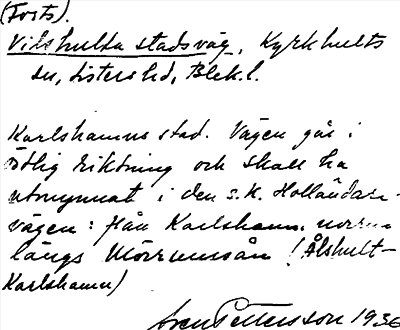 (Forts).
Vilshulta stadsväg, Kyrkhults
sn, Listers hd, Blek. l.
Karlshamns stad. Vägen går i
östlig riktning och skall ha
utmynnat i den s.k. Holländare-
vägen: från Karlshamn norrut
längs Mörrumsån (Ålshult-
Karlshamn)
Sven Pettersson 1936